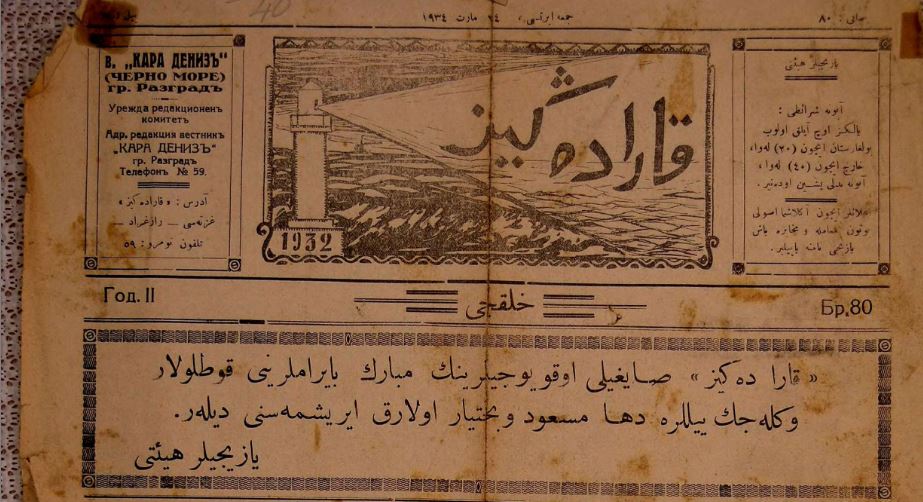 جمعه ايرتسى، ٢٤ مارت ١٩٣٤
صانى : ٨٠
в. „КАРА ДЕНИЗЪ"
(ЧЕРНО МОРЕ)
гр. Разградъ
Урежда редакционенъ
комитетъ
Адр. редакция вестникъ
„КАРА ДЕНИЗЪ"
гр. Разградъ
Телефонъ № 59.
آدرس : « قاراده كيز »
غزته‌سى — رازغراد —
تلفون نومرو : ٥٩
قاراده كيز
1932
يازيجيلر هيئتى
آبونه شرائطى :
يالكز اوچ آيلق اولوب
بولغارستان ايچون (٢٠) لهوا،
خارج ايچون (٤٠) لهوا،
آبونه بدلى پشين اوده‌نير.
Год. II
خلقچى
Бр. 80
« قارا ده كيز » صايغيلى اوقويوجيلرينك مبارك بايراملرينى قوطلولار
وكله‌جك ييللره دها مسعود و بختيار اولارق ايريشمه‌سنى ديلەر.
يازيجيلر هيئتى